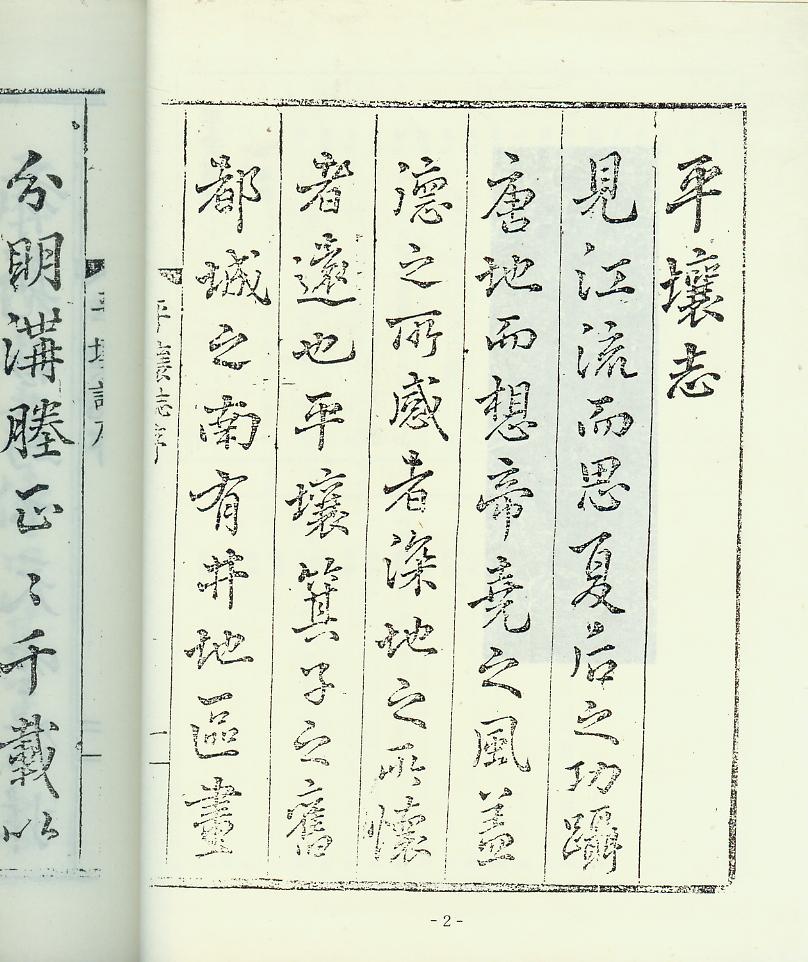 平壤志
見江流而思夏后之功躡
唐地而想帝堯之風盖
德之所感者深地之所懷
者遠也平壤箕子之舊
都城之南有井地區畫
平壤志序
分明溝塍正〻千載以
- 2 -